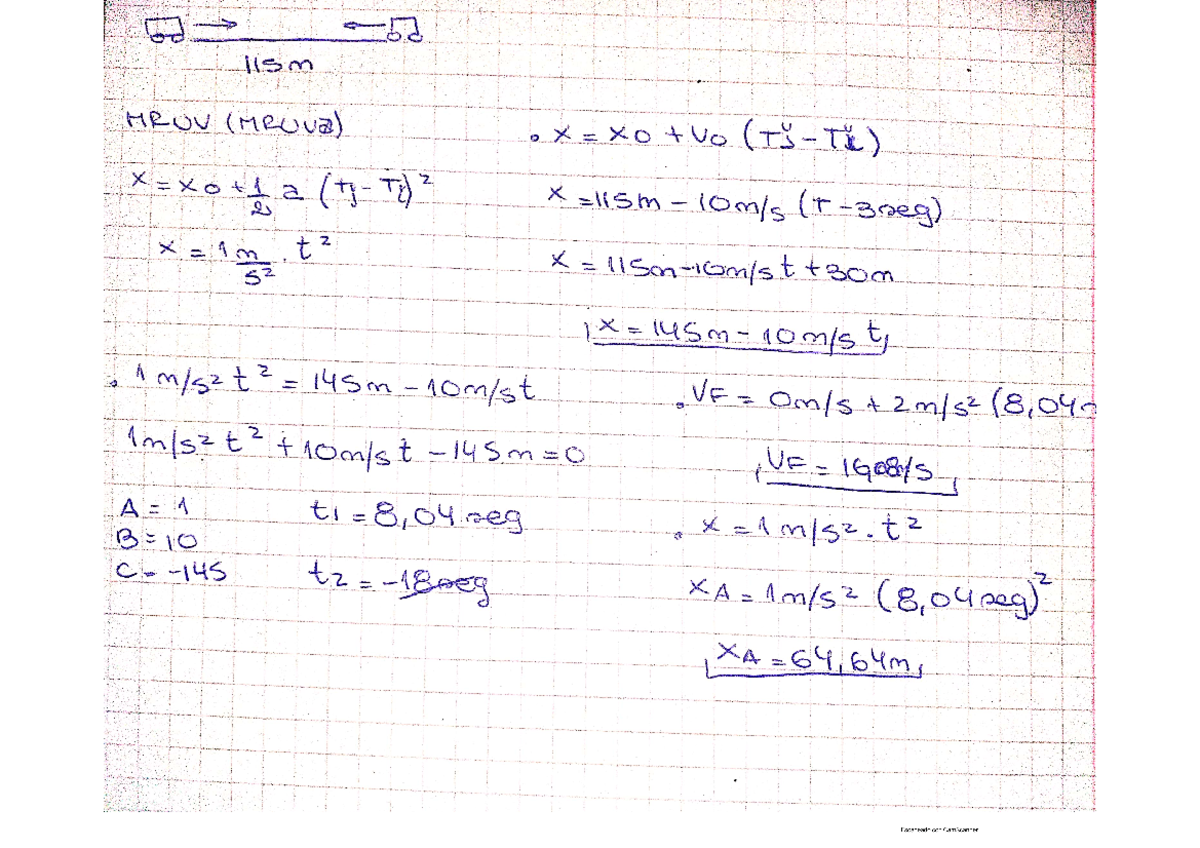 115m
MRUV (MRUVa)
X = X0 + 1/2 a (Tf - Ti)²
X = 1 m/s² . t²
• X = X0 + V0 (Tf - Ti)
X = 115m - 10m/s (T - 3seg)
X = 115m - 10m/s t + 30m
X = 145m - 10m/s t
• 1 m/s² t² = 145m - 10m/s t
1m/s² t² + 10m/s t - 145m = 0
A = 1
B = 10
C = -145
t1 = 8,04 seg
t2 = -18seg
• VF = 0m/s + 2m/s² (8,04
VF =
• X = 1m/s² . t²
XA = 1m/s² (8,04seg)²
XA = 64,64m